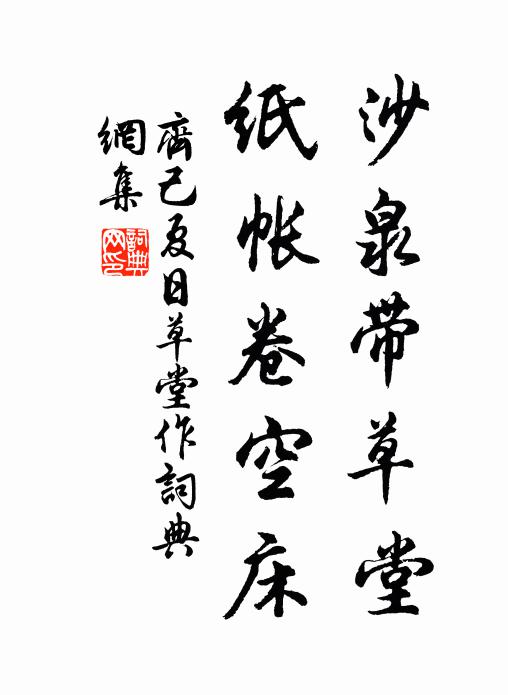 沙泉带草堂
纸帐卷空床
齊己夏日草堂作詞典
網集
詞典
网印